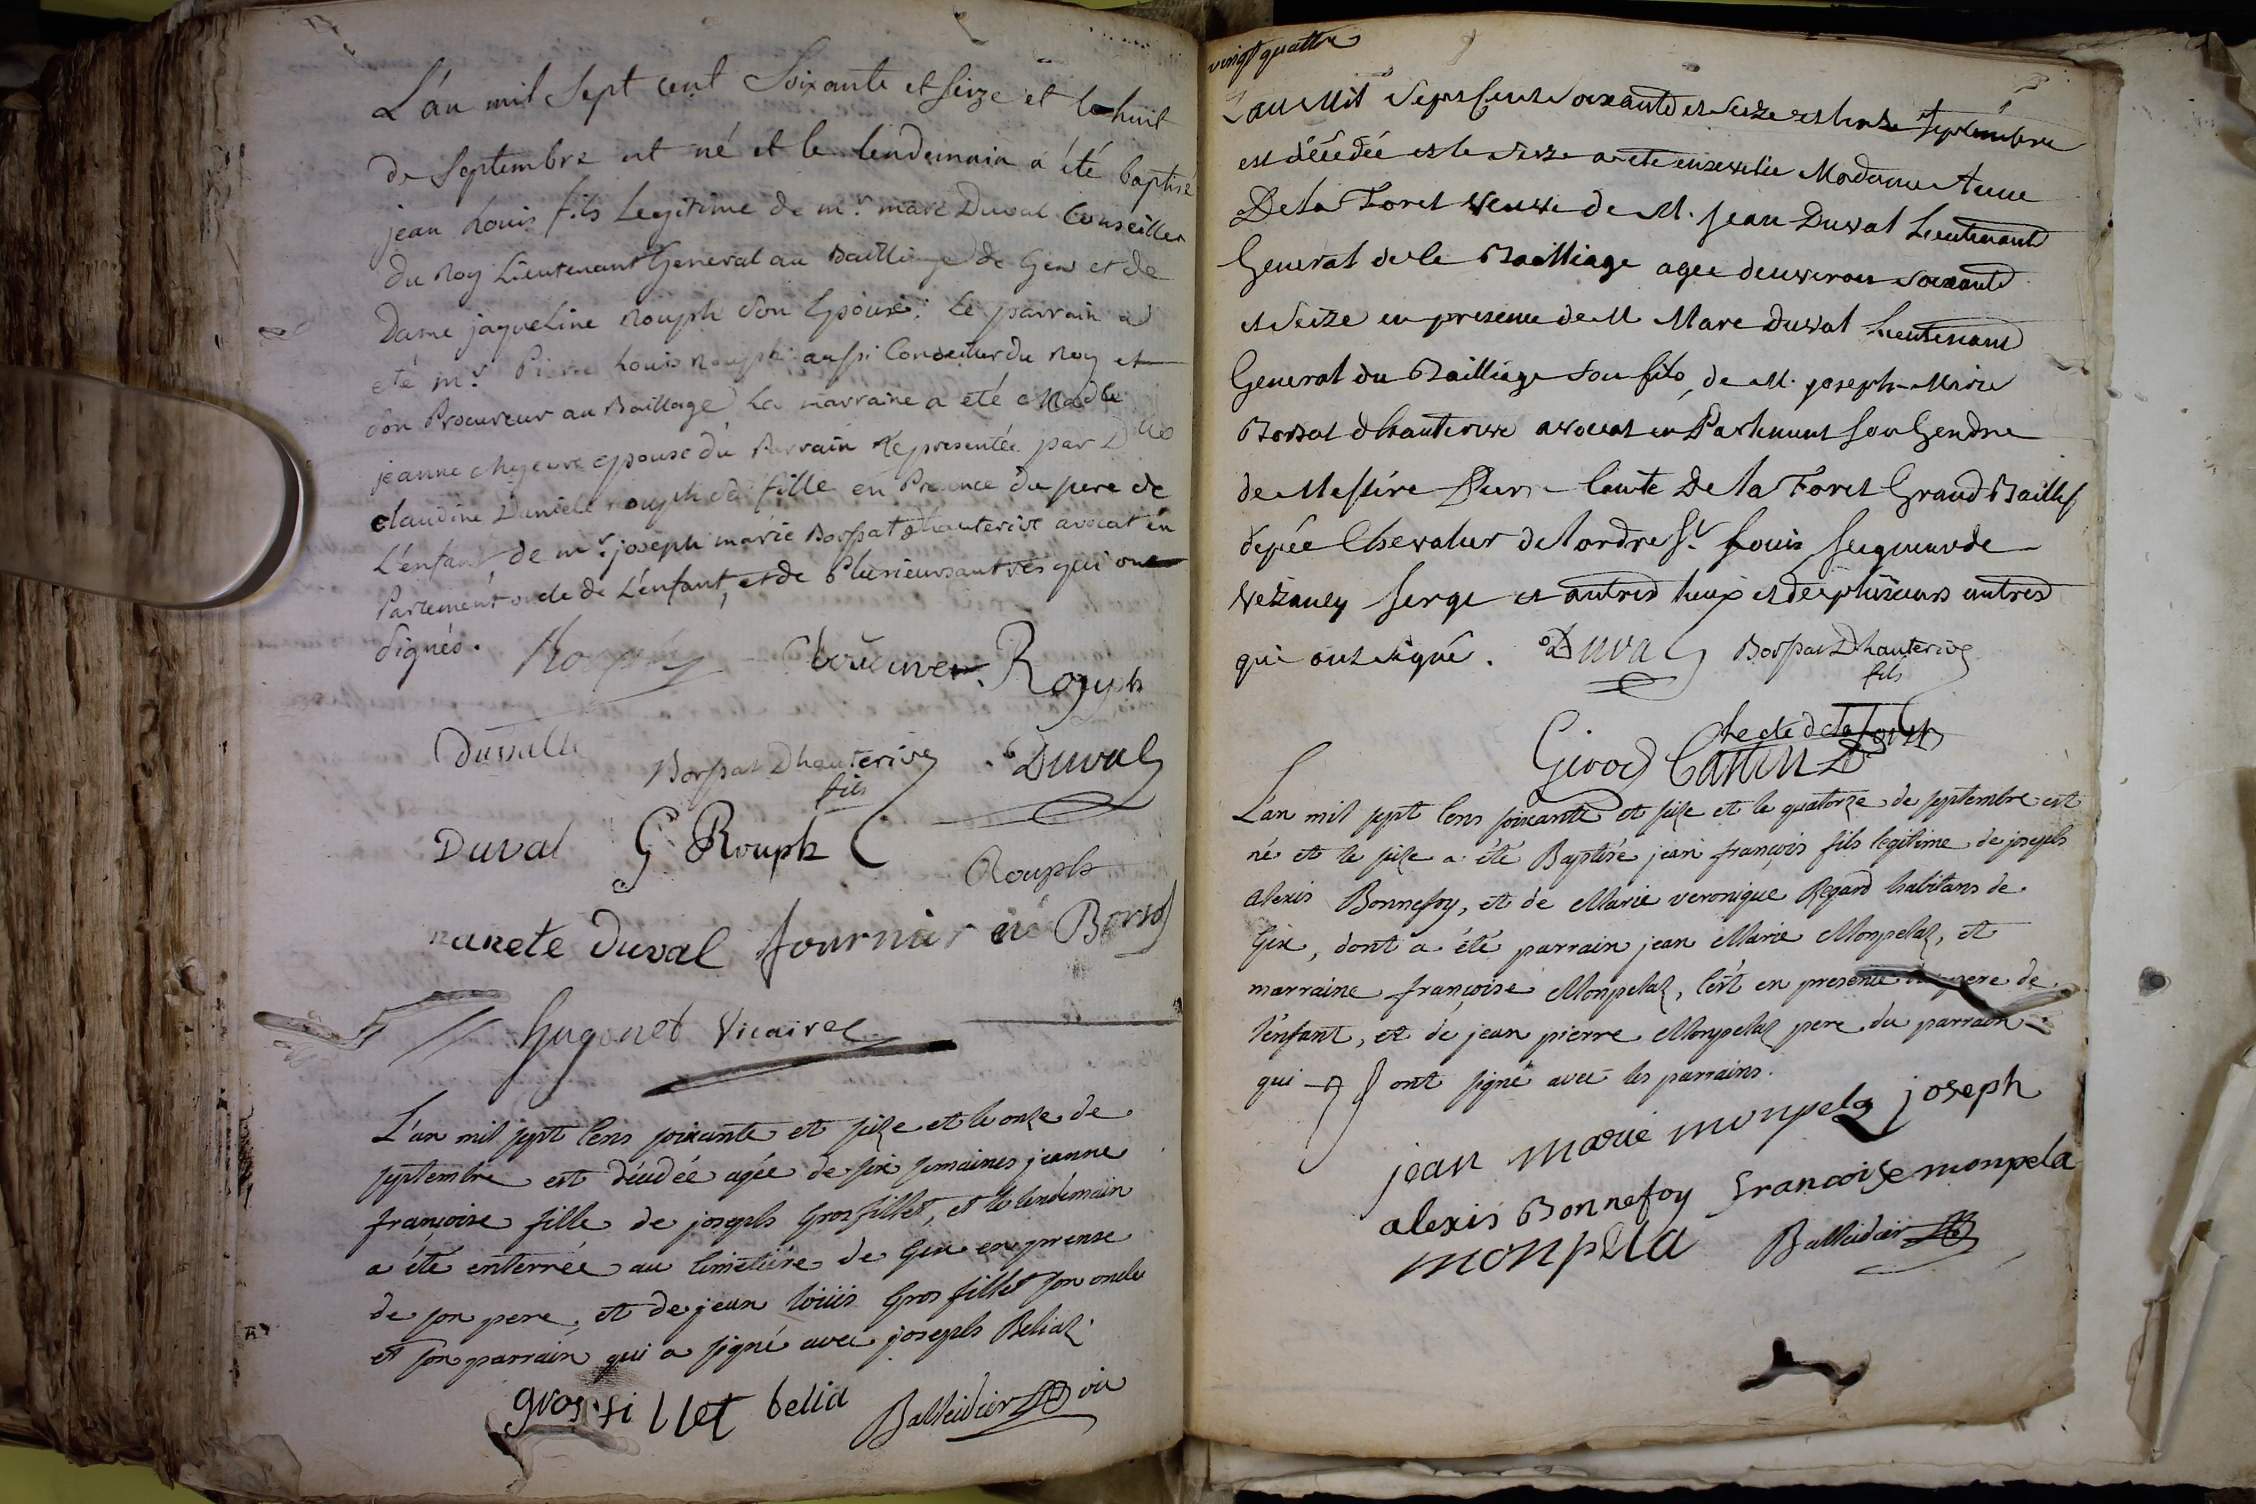 L'an mil Sept cent Soixante et Seize et le huit
de Septembre est né et le lendemain a été baptisé
jean Louis fils Legitime de mr. marc Duval Conseiller
du Roy Lieutenant General au Bailliage de Gex et de
Dame jaqueline Rouph son Epouse; Le parrain a
eté mr. Pierre Louis Rouph aussi Conseiller du Roy et
son Procureur au Bailliage La marraine a eté Made
jeanne epouse du Parrain Representée par Dlle
claudine Daniele rouph sa fille en Presence du pere de
L'enfant, de mr. joseph marie Borssat d'hauterive avocat en
Parlement oncle de L'enfant, et de Plusieurs autres qui ont
signés.
Rouph Rouph
Duval
Borssat Dhauterive Duval
fils
Duval G Rouph
Rouph
nanete Duval fournier né Borsat
Hugonet Vicaire
L'an mil sept Cens soixante et seize et le onze de
septembre est décedée agée de six semaines jeanne
françoise fille de joseph Grosfillet, et le lendemain
a été enterrée au Cimetiere de Gex en presence
de son pere, et de jean loüis Grosfillet son oncle
et son parrain qui a signé avec joseph Beliaz.
grosfillet belia Balleidier vic
vingt quattre
L'an Mil Sept Cent Soixante et Seize et le Septembre
est décédée et le Seize a eté ensevelie Madame Anne
De la Foret Veuve de M. Jean Duval Lieutenant
General de le Bailliage agee denviron Soixante
et Seize en presence de M Marc Duval Lieutenant
General du Bailliage Son fils, de M. joseph Marie
Borsat dhauterive avocat en Parlement Son Gendre
de Messire Pierre Comte De la Foret Grand Baillif
depée Chevalier de lordre St. Louis Seigneur de
Vezancy Serge et autres lieux et de plusieurs autres
qui ont signé. Duval Borssat Dhauterive
fils
Le cte de la foret
Girod Castin
L'an mil sept Cens soixante et seize et le quatorze de septembre est
né et le seize a été Baptisé jean françois fils legitime de joseph
alexis Bonnefoy, et de Marie veronique Regard habitans de
Gex, dont a été parrain jean Marie Monpelaz, et
marraine françoise Monpelaz, C'est en presence du pere de
l'enfant, et de jean pierre Monpelaz pere du parrain
qui ont signé avec les parrains.
jean marie monpela joseph
alexis Bonnefoy francoise monpela
monpela Balleidier